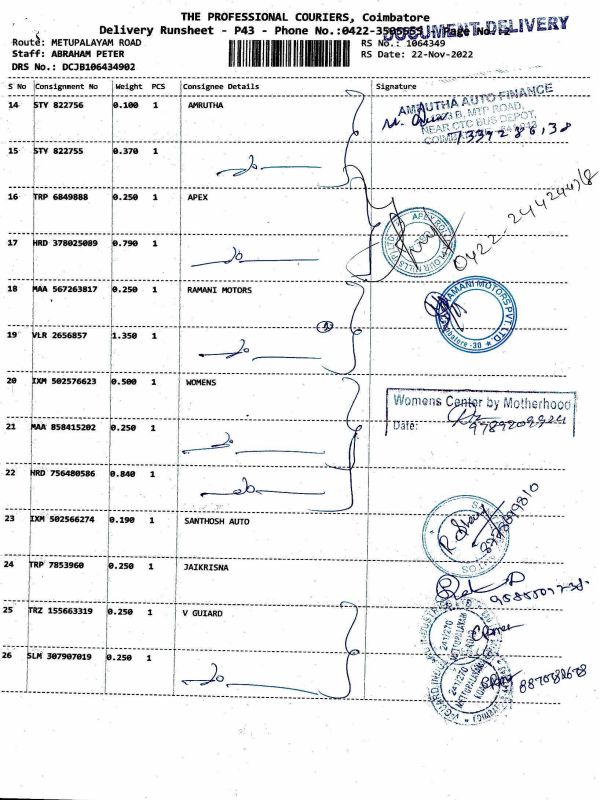 THE PROFESSIONAL COURIERS, Coimbatore
DOCUMENT DELIVERY
Delivery Runsheet - P43 - Phone No.:0422-3505555 Page No.:2
Route: METUPALAYAM ROAD RS No.: 1064349
Staff: ABRAHAM PETER RS Date: 22-Nov-2022
DRS No.: DCJB106434902
S No Consignment No Weight PCS Consignee Details Signature
14 STY 822756 0.100 1 AMRUTHA
AMRUTHA AUTO FINANCE
B, MTP ROAD,
NEAR CTC BUS DEPOT,
15 STY 822755 0.370 1 do
16 TRP 6849888 0.250 1 APEX
17 HRD 378025089 0.790 1 do
18 MAA 567263817 0.250 1 RAMANI MOTORS
RAMANI MOTORS PVT. LTD.
19 VLR 2656857 1.350 1 do
20 IXM 502576623 0.500 1 WOMENS
Womens Center by Motherhood
Date:
21 MAA 858415202 0.250 1 do
22 HRD 756480586 0.840 1 do
23 IXM 502566274 0.190 1 SANTHOSH AUTO
24 TRP 7853960 0.250 1 JAIKRISNA
25 TRZ 155663319 0.250 1 V GUIARD
26 SLM 307907019 0.250 1 do